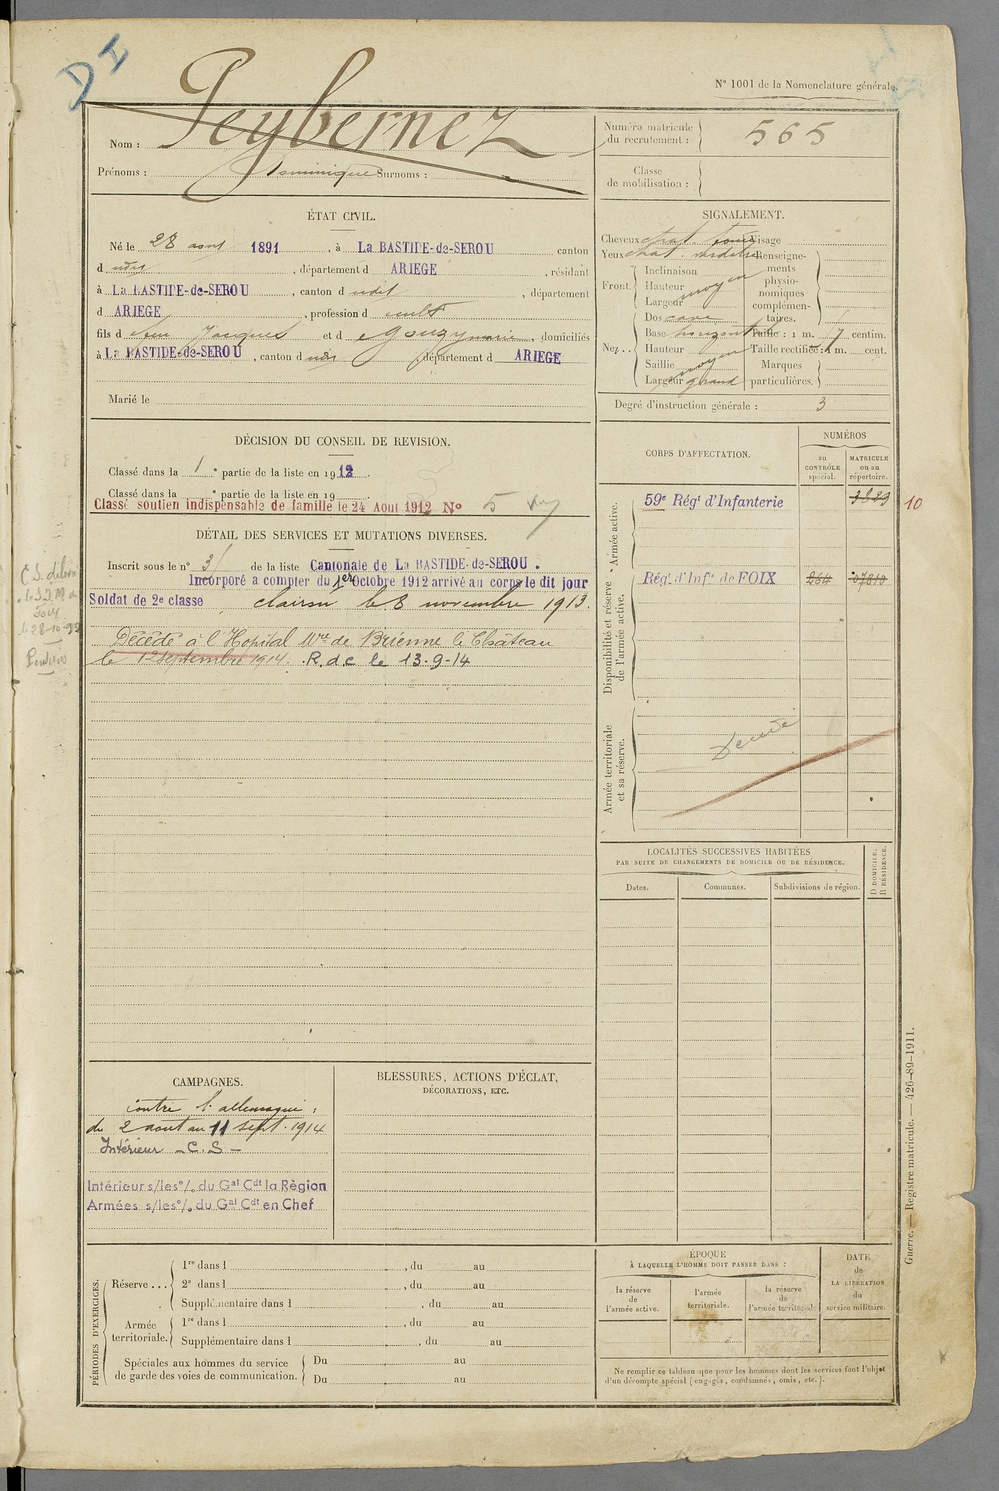 DI
N° 1001 de la Nomenclature générale.
Nom : Peybernez
Prénoms : Dominique Surnoms :
Numéro matricule du recrutement : 565
Classe de mobilisation :
ÉTAT CIVIL.
Né le 28 1891, à La BASTIDE-de-SEROU canton
d udit, département d ARIEGE, résidant
à La BASTIDE-de-SEROU, canton d udit, département
d ARIEGE, profession d cult
fils d Jacques et d Gouzy marie, domiciliés
à La BASTIDE-de-SEROU, canton d udit, département d ARIEGE
Marié le
SIGNALEMENT.
Cheveux chat. Visage
Yeux chat. Renseigne-
ments
physio-
nomiques
complémen-
taires.
Front. Inclinaison
Hauteur moyen
Largeur
Nez... Dos cave
Base horizont Taille : 1 m. 7 centim.
Hauteur moyen Taille rectifiée : 1 m. cent.
Saillie Marques
Largeur grand particulières.
Degré d'instruction générale : 3
DÉCISION DU CONSEIL DE REVISION.
Classé dans la 1e partie de la liste en 1912.
Classé dans la e partie de la liste en 19
Classé soutien indispensable de famille le 24 Aout 1912 N° 5
DÉTAIL DES SERVICES ET MUTATIONS DIVERSES.
Inscrit sous le n° 31 de la liste Cantonale de La BASTIDE-de-SEROU.
Incorporé a compter du 1er Octobre 1912 arrivé au corps le dit jour
Soldat de 2e classe, clairon le 8 novembre 1913.
Décédé à l'Hopital Mre de Brienne le Château
le 12 septembre 1914. R.d.c le 13-9-14
C.S. délivré
Foix
le 28-10-
CORPS D'AFFECTATION.
NUMÉROS
au CONTRÔLE spécial.
MATRICULE ou au répertoire.
Armée active.
59e Régt d'Infanterie 3889 10
Disponibilité et réserve de l'armée active.
Régt d'Inft de FOIX 264 07810
Armée territoriale et sa réserve.
LOCALITÉS SUCCESSIVES HABITÉES
PAR SUITE DE CHANGEMENTS DE DOMICILE OU DE RÉSIDENCE.
Dates. Communes. Subdivisions de région. D DOMICILE. R RÉSIDENCE.
CAMPAGNES.
contre l'allemagne :
du 2 aout au 11 sept. 1914
Intérieur - C.S -
Intérieur s/les o/. du Gal Cdt la Région
Armées s/les o/. du Gal Cdt en Chef
BLESSURES, ACTIONS D'ÉCLAT,
DÉCORATIONS, ETC.
PÉRIODES D'EXERCICES.
Réserve... 1re dans l , du au
2e dans l , du au
Supplémentaire dans l , du au
Armée territoriale. 1re dans l , du au
Supplémentaire dans l , du au
Spéciales aux hommes du service de garde des voies de communication. Du au
Du au
ÉPOQUE
À LAQUELLE L'HOMME DOIT PASSER DANS :
la réserve de l'armée active.
l'armée territoriale.
la réserve de l'armée territoriale
DATE de LA LIBÉRATION du service militaire.
Ne remplir ce tableau que pour les hommes dont les services font l'objet
d'un décompte spécial (engagés, condamnés, omis, etc.).
Guerre. — Registre matricule. — 426-89-1911.